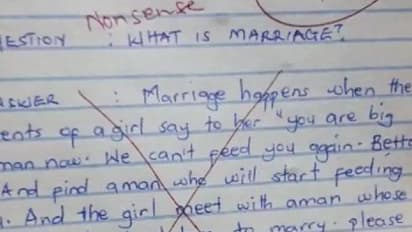 Nonsense
ESTION : WHAT IS MARRIAGE?
SWER : Marriage happens when the
ents of a girl say to her "you are big
man now. We can't feed you again. Bette
And find a man who will start feeding
. And the girl meet with a man whose
to marry. please